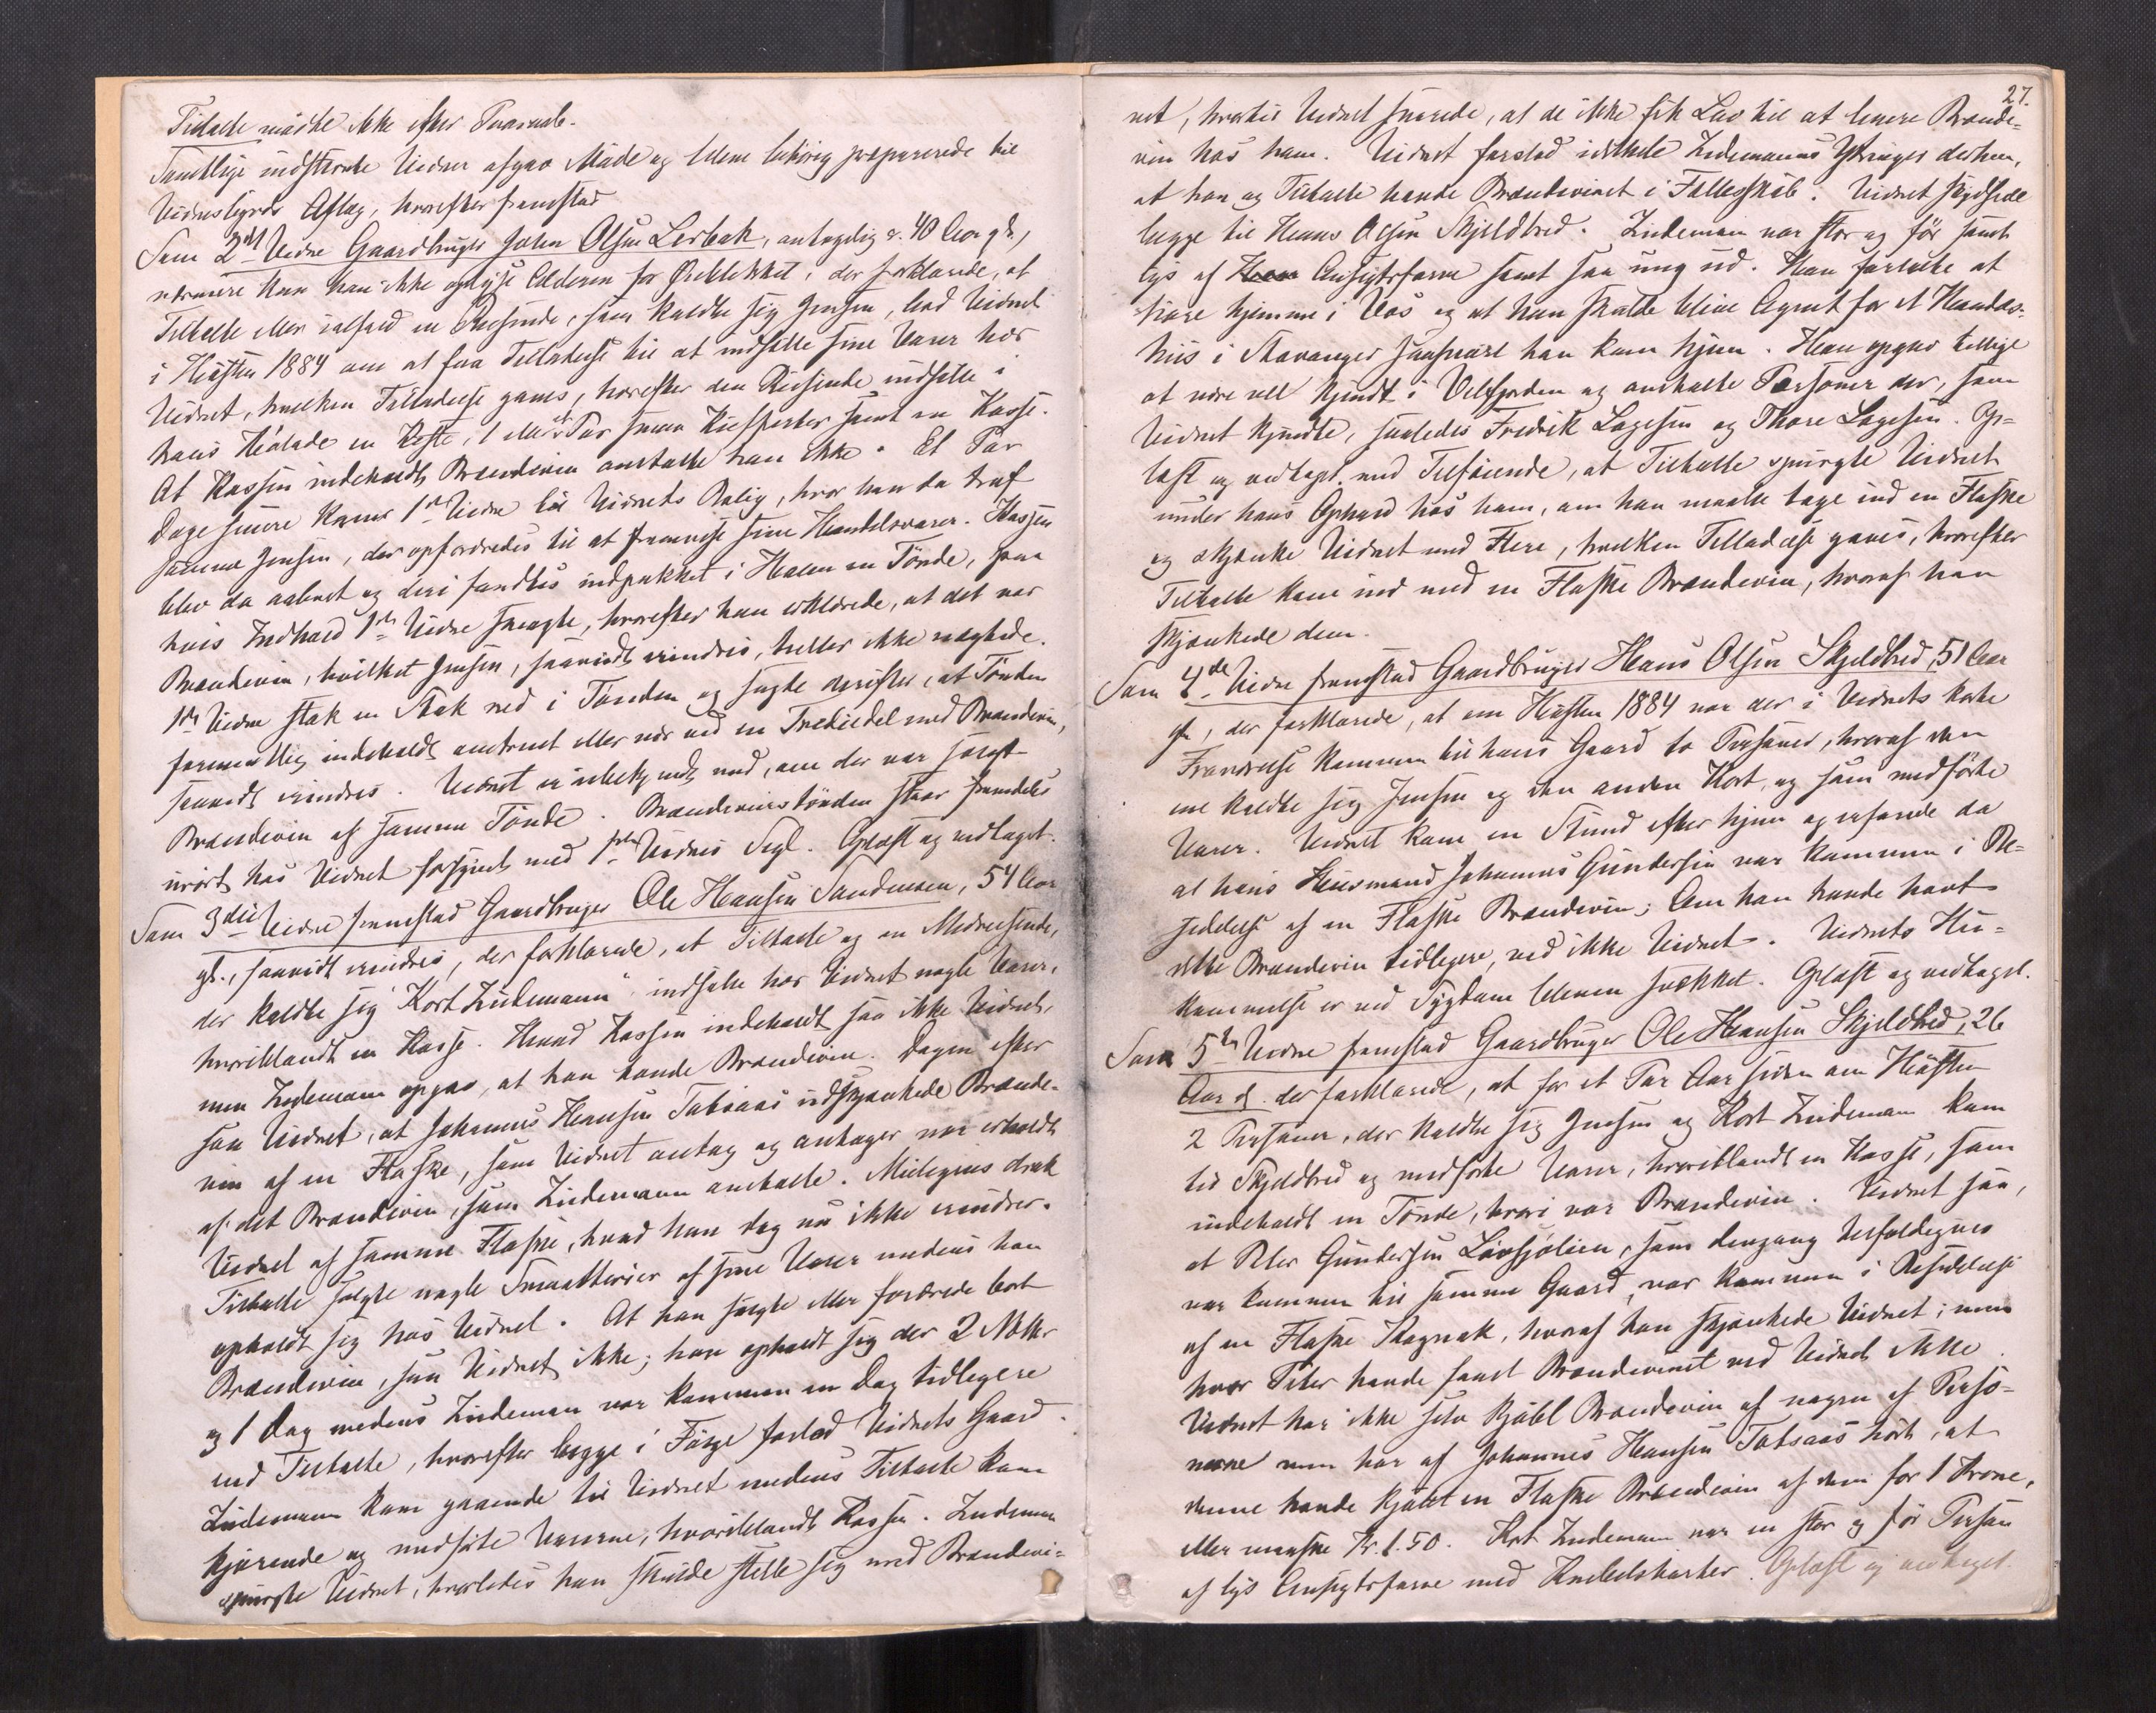 Tiltalte mødte ikke efter Paaraab.
Samtlige indstevnte Vidner afgav Møde og bleve behørig præparerede til
Vidnesbyrds Aflæg, hvorefter fremstod
Som 2det Vidne Gaardbruger Johan Olsen Lerbak, antagelig c. 40 Aar gl.,
nærmere kan han ikke opgive Alderen for Øieblikket, der forklarede, at
Tiltalte eller ialfald en Reisende, som kaldte sig Jensen, bad Vidnet
i Høsten 1884 om at faa Tilladelse til at indsætte sine Varer hos
Vidnet, hvilken Tilladelse gaves, hvorefter den Reisende indsatte i
hans Hølade en Kiste, 1 eller et Par smaa Kufferter samt en Kasse.
At Kassen indeholdt Brændevin omtalte han ikke. Et Par
Dage senere kom 1ste Vidne til Vidnets Bolig, hvor han da traf
samme Jensen, der opfordredes til at fremvise sine Handelsvarer. Kassen
blev da aabnet og deri fandtes indpakket i Halm en Tønde, paa
hvis Indhold 1ste Vidne smagte, hvorefter han erklærede, at det var
Brændevin, hvilket Jensen, saavidt erindres, heller ikke nægtede.
1ste Vidne stak en Stok ned i Tønden og sagde derefter, at Tønden
formentlig indeholdt omtrent eller nær ved en Trediedel med Brændevin,
saavidt erindres. Vidnet er ubekjendt med, om der var solgt
Brændevin af samme Tønde. Brændevinstønden staar fremdeles
urørt hos Vidnet forsynet med 1ste Vidnes Segl. Oplæst og vedtaget.
Som 3die Vidne fremstod Gaardbruger Ole Hansen Sandmoen, 54 Aar
gl., saavidt erindres, der forklarede, at Tiltalte og en Medreisende,
der kaldte sig "Kort Lindemann" indsatte hos Vidnet nogle Varer,
hvoriblandt en Kasse. Hvad Kassen indeholdt saa ikke Vidnet,
men Lindemann opgav, at han havde Brændevin. Dagen efter
saa Vidnet, at Johannes Hansen Tobaas udskjænkede Brænde-
vin af en Flaske, som Vidnet antog og antager var erholdt
af det Brændevin, som Lindemann omtalte. Muligens drak
Vidnet af samme Flaske, hvad han dog nu ikke erindrer.
Tiltalte solgte nogle Smaatterier af sine Varer medens han
opholdt sig hos Vidnet. At han solgte eller foræрede bort
Brændevin, saa Vidnet ikke; han opholdt sig der 2 Nætter
og 1 Dag medens Lindeman var kommen en Dag tidligere
end Tiltalte, hvorefter begge i Følge forlod Vidnets Gaard.
Lindemann kom gaaende til Vidnet medens Tiltalte kom
kjørende og medførte Varerne, hvoriblandt Kassen. Lindeman
spurgte Vidnet, hvorledes han skulde stelle sig med Brændevi-
27.
net, hvortil Vidnet svarede, at de ikke fik Lov til at levere Brænde-
vin hos ham. Vidnet forstod Lindemanns Ytringer derhen,
at han og Tiltalte havde Brændevinet i Fællesskab. Vidnet skydsede
begge til Hans Olsen Skjeldbred. Lindeman var stor og før samt
lys af Ansigtsfarve samt saa ung ud. Han fortalte at
høre hjemme i Vos og at han skulde blive Agent for et Handels-
hus i Stavanger saasnart han kom hjem. Han opgav tillige
at være vel kjendt i Velfjorden og omtalte Personer der, som
Vidnet kjendte, saaledes Fredrik Lagesen og Thore Lagesen. Op-
læst og vedtaget med Tilføiende, at Tiltalte spurgte Vidnet
under hans Ophold hos ham, om han maatte tage ind en Flaske
og skjænke Vidnet med Flere, hvilken Tilladelse gaves, hvorefter
Tiltalte kom ind med en Flaske Brændevin, hvoraf han
skjænkede dem.
Som 4de Vidne fremstod Gaardbruger Hans Olsen Skjeldbred, 51 Aar
gl., der forklarede, at om Høsten 1884 var der i Vidnets korte
Fraværelse kommen til hans Gaard to Personer, hvoraf den
ene kaldte sig Jensen og den anden Kort, og som medførte
Varer. Vidnet kom en Stund efter hjem og erfarede da
at hans Huusmand Johannes Gundersen var kommen i Be-
siddelse af en Flaske Brændevin; Om han havde havt
dette Brændevin tidligere, ved ikke Vidnet. Vidnets Hu-
kommelse er ved Sygdom bleven svækket. Oplæst og vedtaget.
Som 5te Vidne fremstod Gaardbruger Ole Hansen Skjeldbred, 26
Aar gl. der forklarede, at for et Par Aar siden om Høsten
2 Personer, der kaldte sig Jensen og Kort Lindeman kom
til Skjeldbred og medførte Varer, hvoriblandt en Kasse, som
indeholdt en Tønde, hvori var Brændevin. Vidnet saa,
at Peter Gundersen Løvsjølien, som dengang tilfældigvis
var kommen til samme Gaard, var kommen i Besiddelse
af en Flaske Kognak, hvoraf han skjænkede Vidnet; men
hvor Peter havde faaet Brændevinet ved Vidnet ikke.
Vidnet har ikke selv kjøbt Brændevin af nogen af Perso-
nerne men har af Johannes Hansen Tobaas hørt, at
denne havde kjøbt en Flaske Brændevin af dem for 1 Krone,
eller maaske Kr. 1.50. Kort Lindeman var en stor og før Person
af lys Ansigtsfarve med Knebelsbarter. Oplæst og vedtaget.